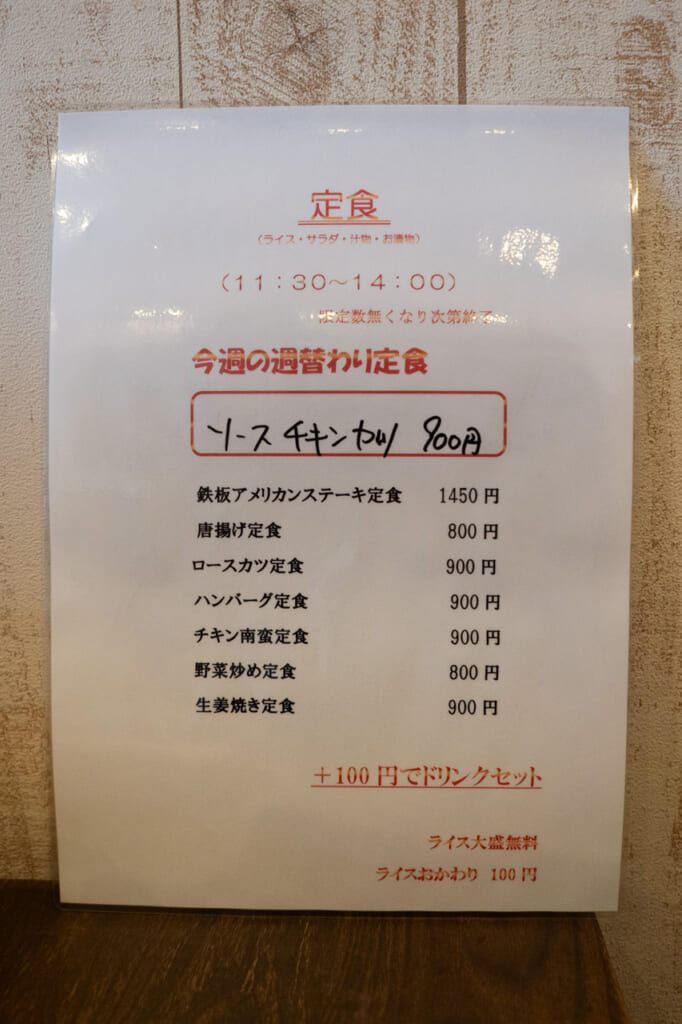 定食
（ライス・サラダ・汁物・お漬物）
（11：30～14：00）
限定数無くなり次第終了
今週の週替わり定食
ソースチキンカツ 900円
鉄板アメリカンステーキ定食 1450円
唐揚げ定食 800円
ロースカツ定食 900円
ハンバーグ定食 900円
チキン南蛮定食 900円
野菜炒め定食 800円
生姜焼き定食 900円
＋100円でドリンクセット
ライス大盛無料
ライスおかわり 100円